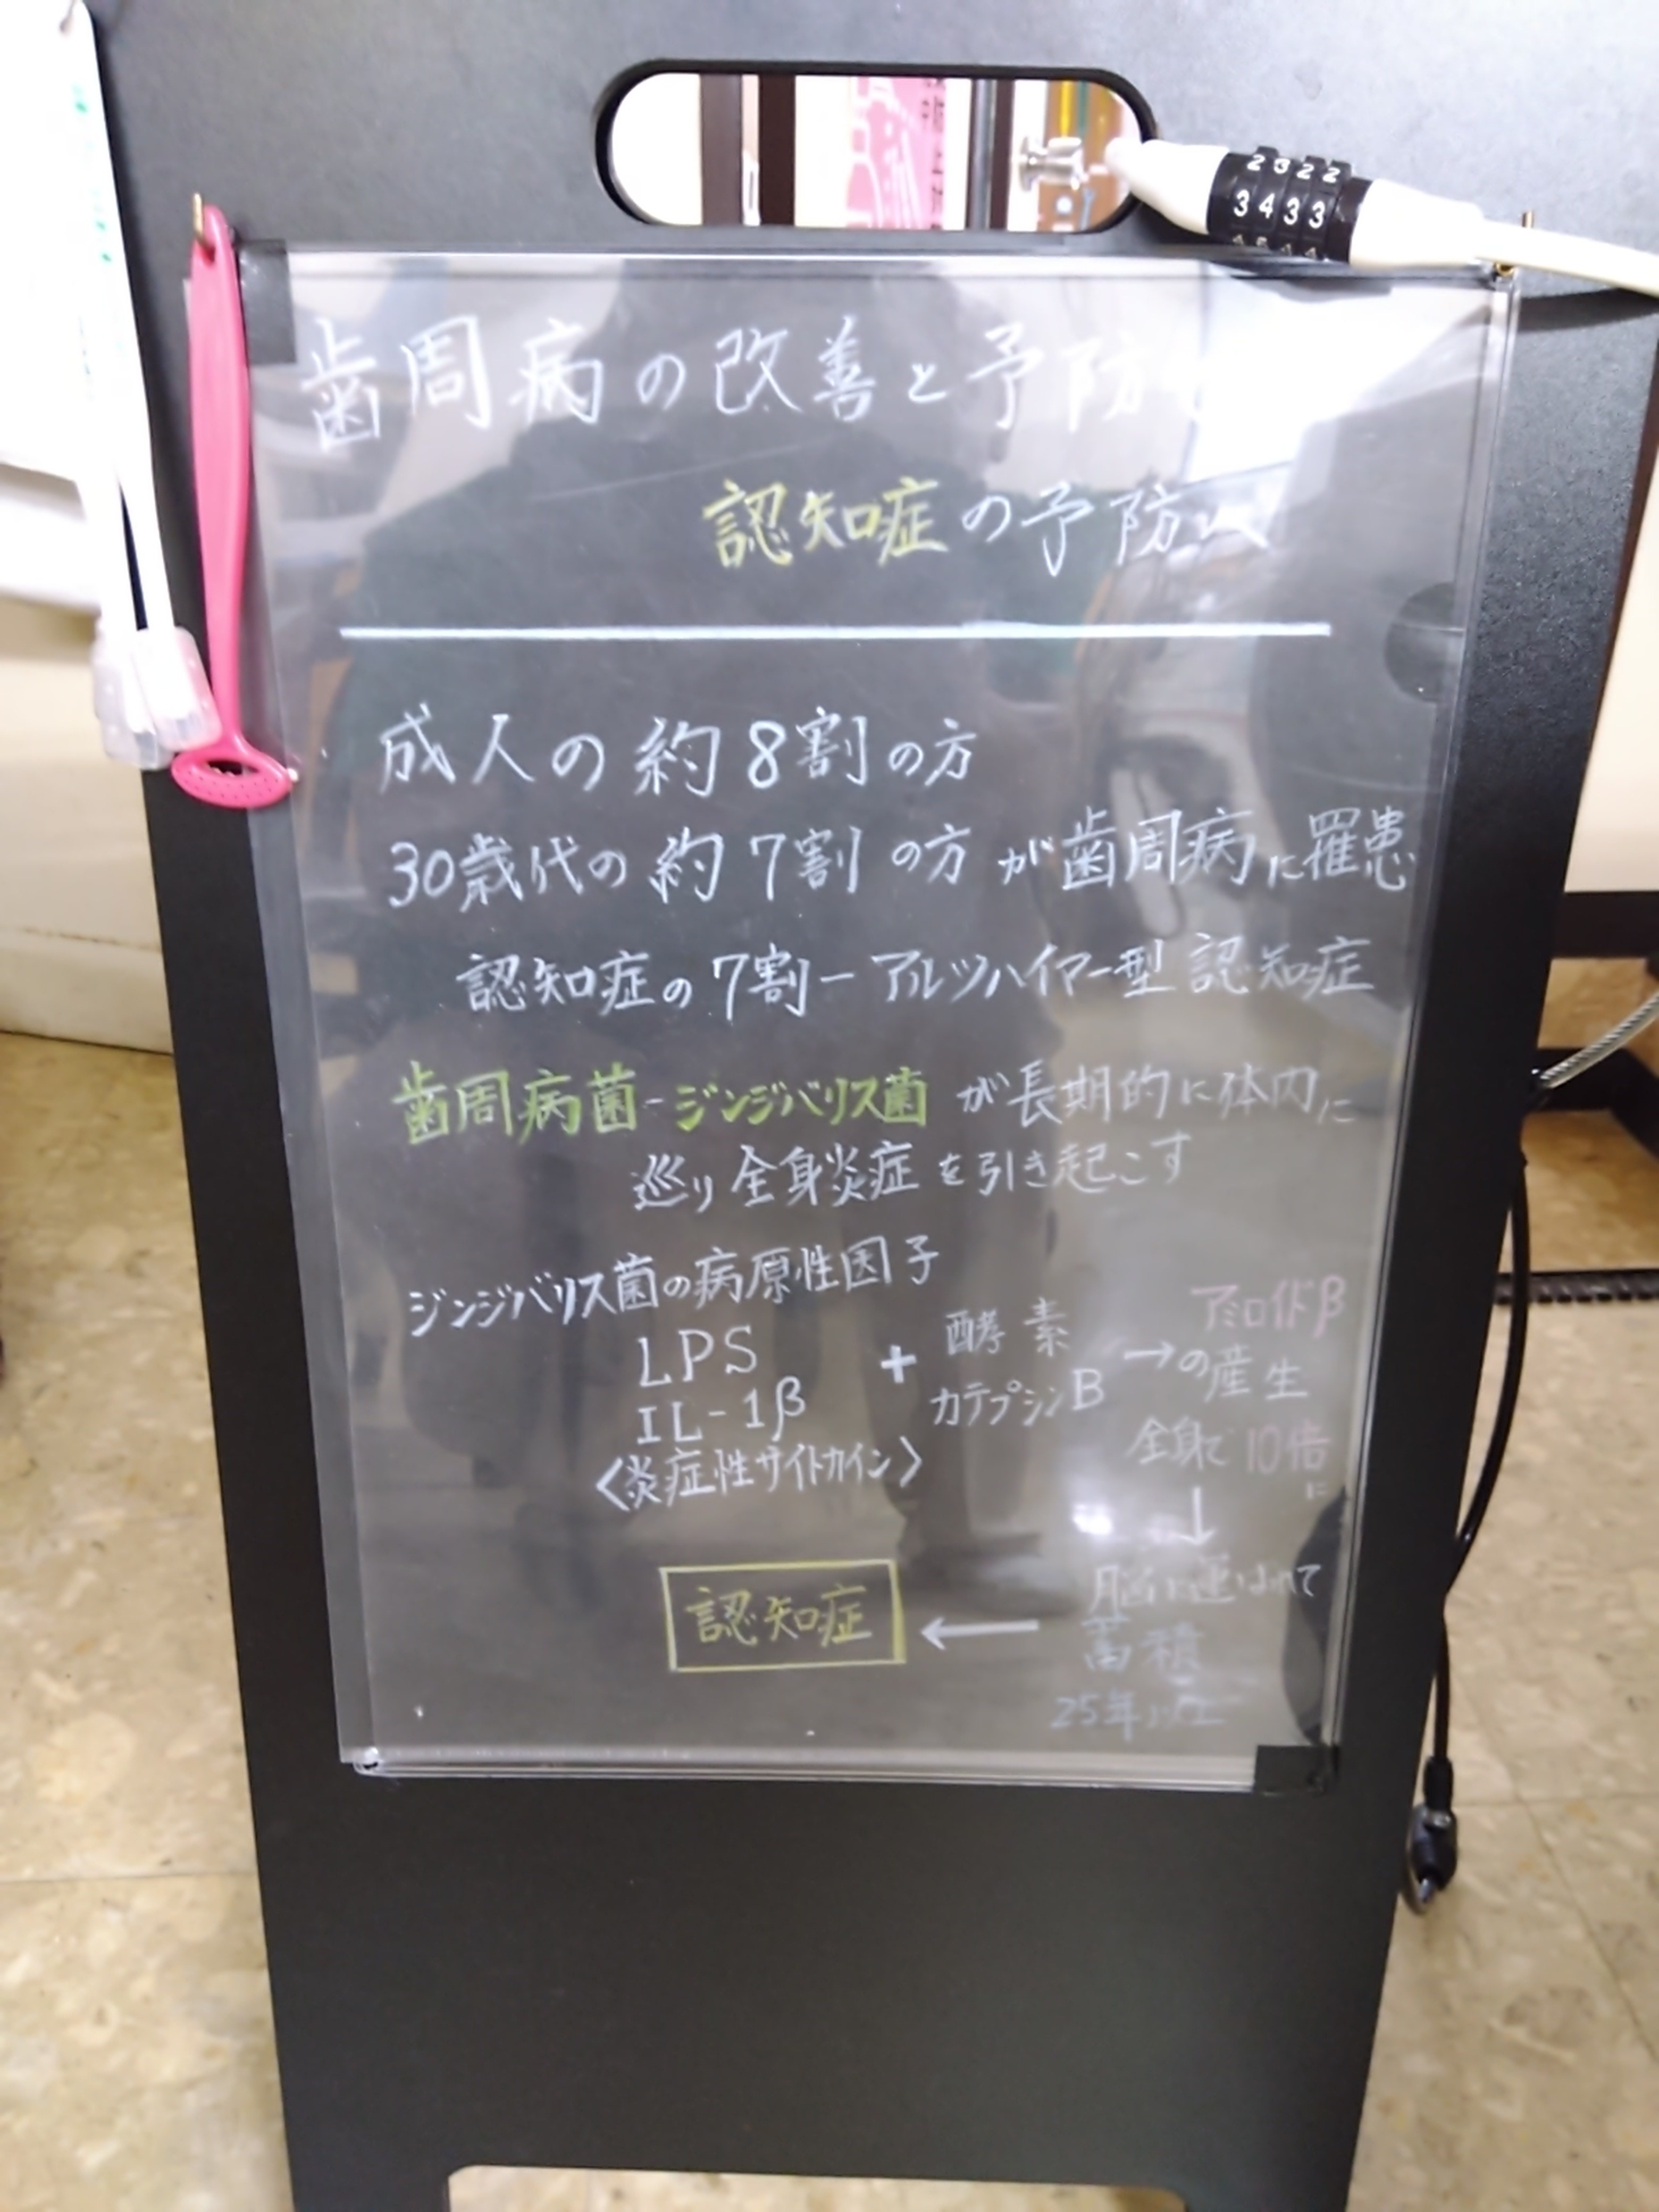 2322
3433
歯周病の改善と予防
認知症の予防へ
成人の約8割の方
30歳代の約7割の方が歯周病に罹患
認知症の7割ーアルツハイマー型認知症
歯周病菌-ジンジバリス菌が長期的に体内に
巡り全身炎症を引き起こす
ジンジバリス菌の病原性因子
LPS
IL-1β
<炎症性サイトカイン>
+
酵素
カテプシンB
→
アミロイドβ
の産生
全身で10倍
に
↓
脳に運ばれて
蓄積
25年
←
認知症